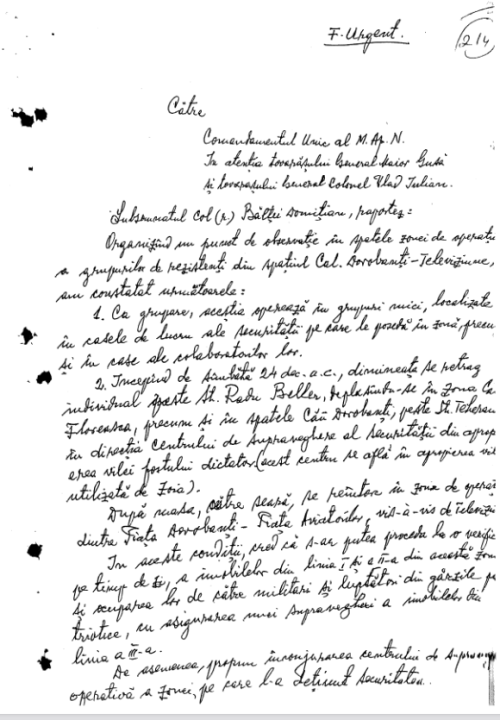 F. Urgent.
214
Către
Comandamentul Unic al M.Ap.N.
În atenția tovarășului General Maior Gușă
și tovarășului General Colonel Vlad Iulian.
Subsemnatul Col (r.) Bâlții Domițian, raportez:
Organizînd un punct de observație în spatele zonei de operații
a grupurilor de rezistenți din spațiul Cal. Dorobanți-Televiziune,
am constatat următoarele:
1. Ca grupare, aceștia operează în grupuri mici, localizate
în casele de lucru ale securității pe care le posedă în zonă, precum
și în case ale colaboratorilor lor.
2. Începînd de sîmbătă 24 dec. a.c., dimineața se retrag
individual peste St. Radu Beller, deplasîndu-se în zona Ca
Floreasca, precum și în spatele Căii Dorobanți, peste St. Teheran
în direcția centrului de supraveghere al securității din aprop
erea vilei fostului dictator (acest centru se află în apropierea vil
utilizată de Zoia).
După masa, către seară, se reîntorc în zona de operații
dintre Piața Dorobanți - Piața Aviatorilor, vis-à-vis de Televizi
În aceste condiții, cred că s-ar putea proceda la o verific
pe timp de zi, a imobilelor din linia I și a II-a din această zonă
și ocuparea lor de către militari și luptători din gărzile pa
triotice, cu asigurarea unei supravegheri a imobilelor din
linia a III-a.
De asemenea, propun înconjurarea centrului de suprave
operativă a zonei, pe care l-a deținut securitatea.